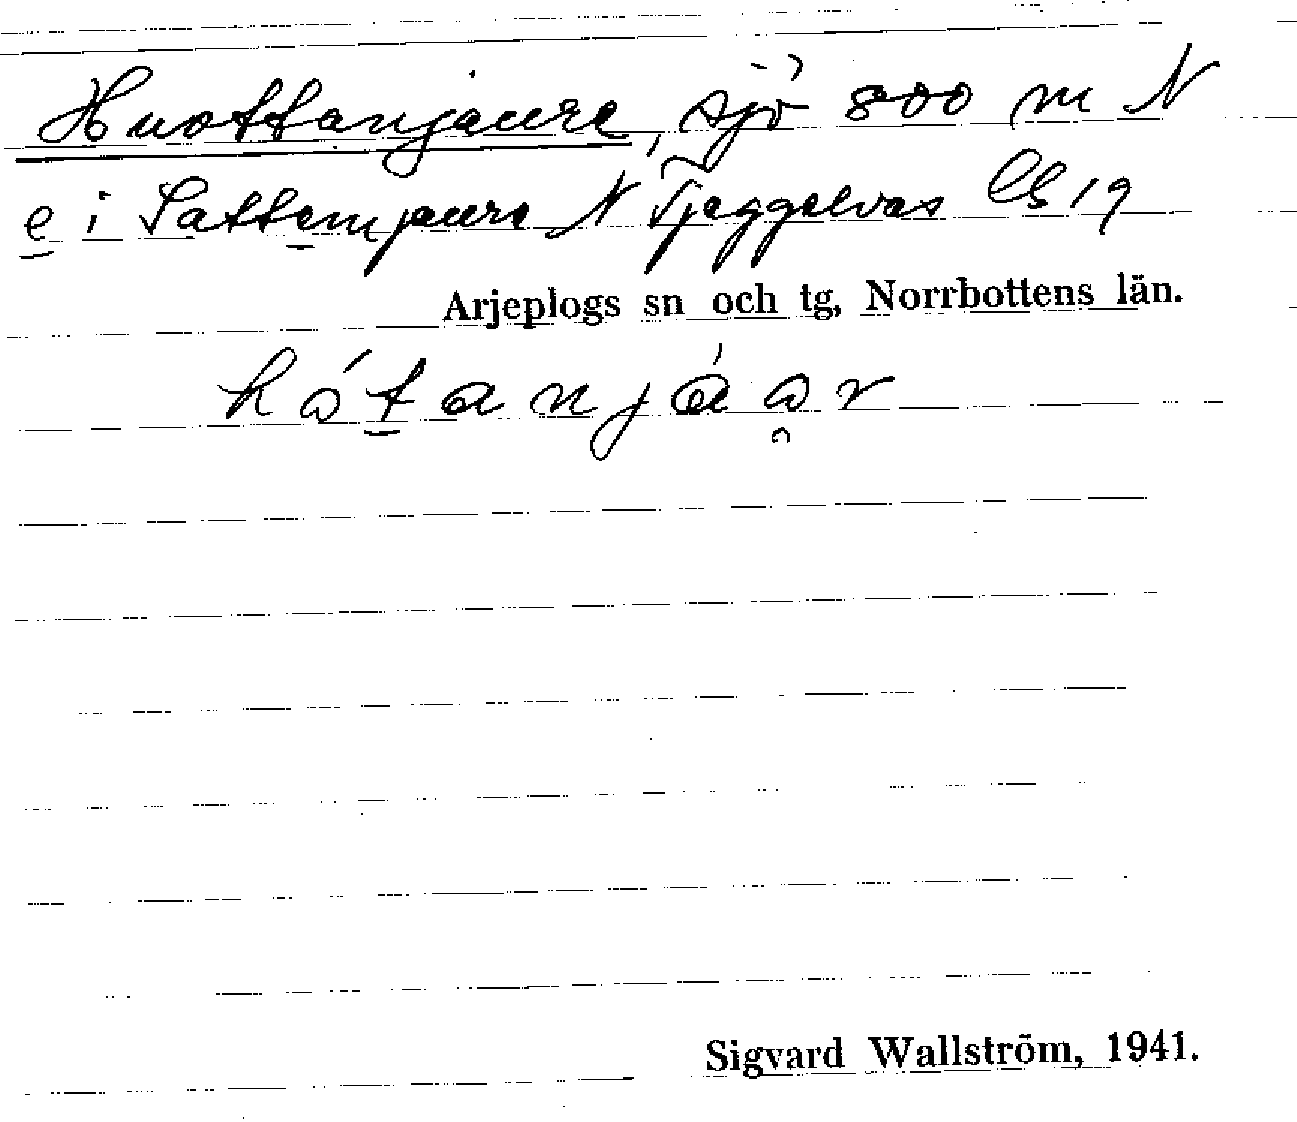 Huottanjaure, sjö 800 m N
e i Sattemjaure N Tjeggelvas Cb 19
Arjeplogs sn och tg, Norrbottens län.
hótanjáor
Sigvard Wallström, 1941.